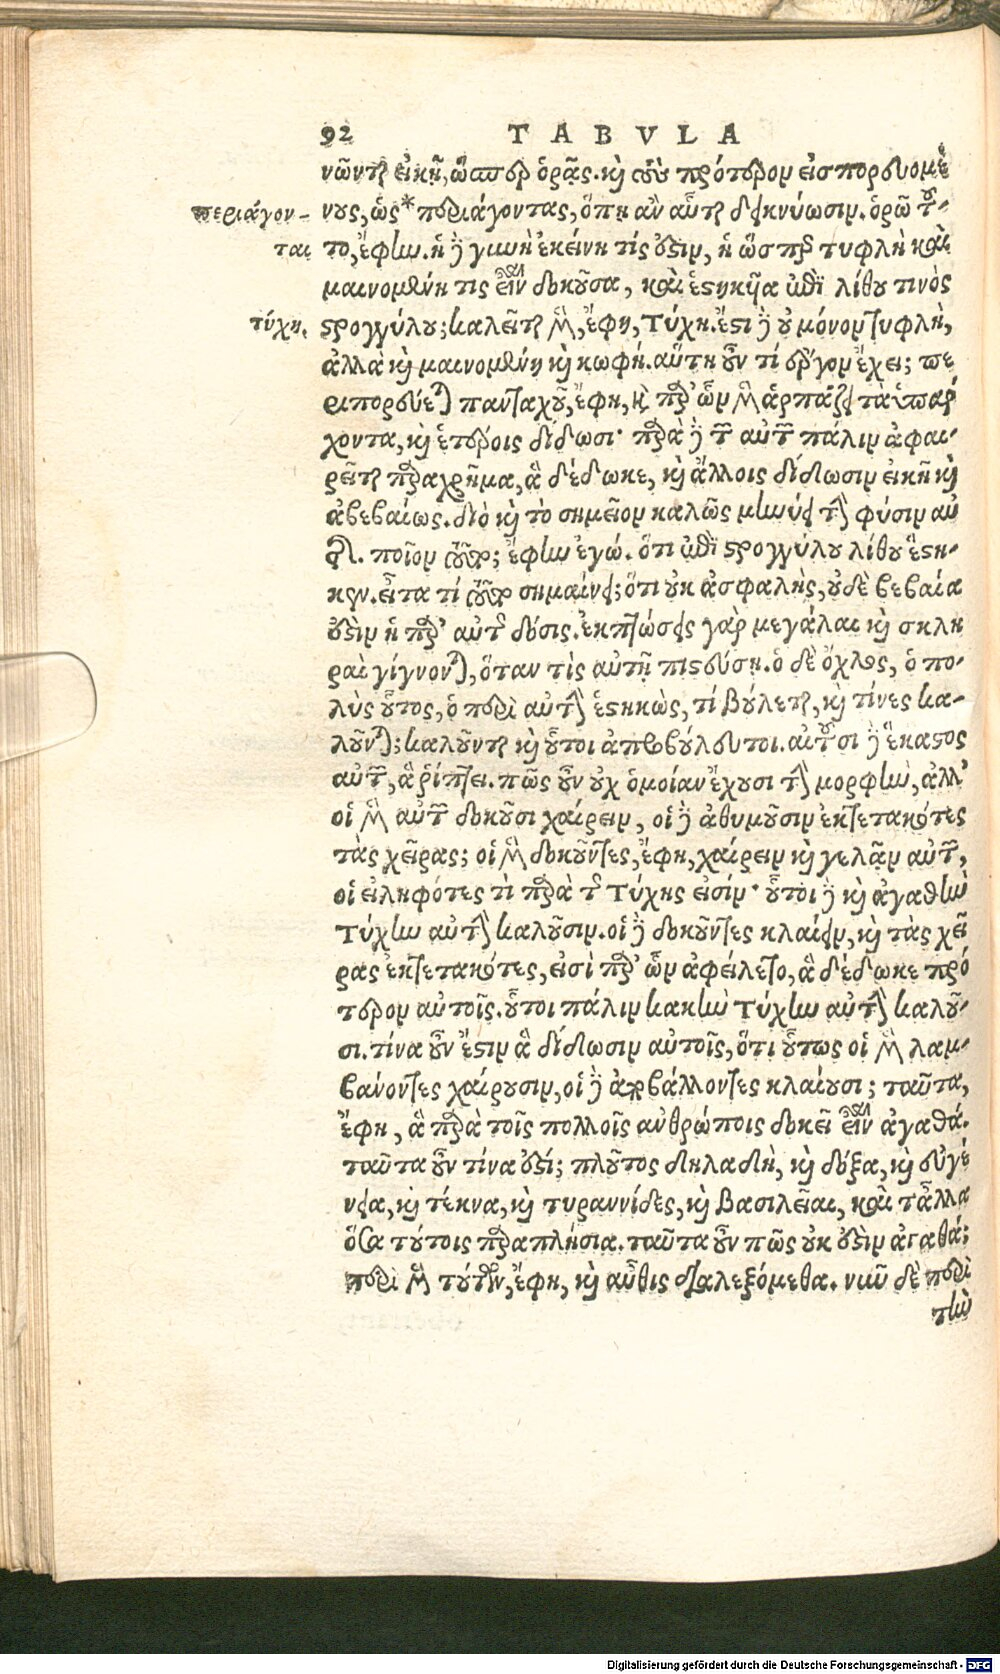 92 TABVLA
νῶνται εἰκῆ, ὥσπερ ὁρᾷς. καὶ τοὺς πρότερον εἰσπορευομέ
νους, ὡς* περιάγοντας, ὅπη ἂν αὗται δεικνύωσιν. ὁρῶ τοῦ-
περιάγον-
ται
το, ἔφην. ἡ δὲ γυνὴ ἐκείνη τίς ἐστιν, ἡ ὥσπερ τυφλὴ καὶ
μαινομένη τις εἶναι δοκοῦσα, καὶ ἑστηκυῖα ἐπὶ λίθου τινὸς
τύχη.
στρογγύλου; καλεῖται μὲν, ἔφη, Τύχη. ἔστι δὲ οὐ μόνον τυφλὴ,
ἀλλὰ καὶ μαινομένη καὶ κωφή. αὕτη οὖν τί ἔργον ἔχει; πε
ριπορεύεται πανταχοῦ, ἔφη, καὶ παρ' ὧν μὲν ἁρπάζει τὰ ὑπάρ
χοντα, καὶ ἑτέροις δίδωσι· παρὰ δὲ τῶν αὐτῶν πάλιν ἀφαι-
ρεῖται παραχρῆμα, ἃ δέδωκε, καὶ ἄλλοις δίδωσιν εἰκῆ καὶ
ἀβεβαίως. διὸ καὶ τὸ σημεῖον καλῶς μηνύει τὴν φύσιν αὐ
τῆς. ποῖον τοῦτο; ἔφην ἐγώ. ὅτι ἐπὶ στρογγύλου λίθου ἕστη-
κεν. εἶτα τί τοῦτο σημαίνει; ὅτι οὐκ ἀσφαλὴς, οὐδὲ βεβαία
ἐστὶν ἡ παρ' αὐτῆς δόσις. ἐκπτώσεις γὰρ μεγάλαι καὶ σκλη
ραὶ γίγνονται, ὅταν τὶς αὐτῇ πιστεύσῃ. ὁ δὲ ὄχλος, ὁ πο-
λὺς οὗτος, ὁ περὶ αὐτὴν ἑστηκὼς, τί βούλεται, καὶ τίνες κα-
λοῦνται; καλοῦνται καὶ οὗτοι ἀπροβούλευτοι. αἰτοῦσι δὲ ἕκαστος
αὐτῶν, ἃ ῥίπτει. πῶς οὖν οὐχ ὁμοίαν ἔχουσι τὴν μορφὴν, ἀλλ'
οἱ μὲν αὐτῶν δοκοῦσι χαίρειν, οἱ δὲ ἀθυμοῦσιν ἐκτετακότες
τὰς χεῖρας; οἱ μὲν δοκοῦντες, ἔφη, χαίρειν καὶ γελᾷν αὐτῶν,
οἱ εἰληφότες τὶ παρὰ τῆς Τύχης εἰσίν· οὗτοι δὲ καὶ ἀγαθὴν
Τύχην αὐτὴν καλοῦσιν. οἱ δὲ δοκοῦντες κλαίειν, καὶ τὰς χεῖ
ρας ἐκτετακότες, εἰσὶ παρ' ὧν ἀφείλετο, ἃ δέδωκε πρό
τερον αὐτοῖς. οὗτοι πάλιν κακὴν Τύχην αὐτὴν καλοῦ-
σι. τίνα οὖν ἔστιν ἃ δίδωσιν αὐτοῖς, ὅτι οὕτως οἱ μὲν λαμ-
βάνοντες χαίρουσιν, οἱ δὲ ἀποβάλλοντες κλαίουσι; ταῦτα,
ἔφη, ἃ παρὰ τοῖς πολλοῖς ἀνθρώποις δοκεῖ εἶναι ἀγαθά.
ταῦτα οὖν τίνα ἐστί; πλοῦτος δηλαδὴ, καὶ δόξα, καὶ εὐγέ
νεια, καὶ τέκνα, καὶ τυραννίδες, καὶ βασιλεῖαι, καὶ τἆλλα
ὅσα τούτοις παραπλήσια. ταῦτα οὖν πῶς οὐκ ἐστὶν ἀγαθά;
περὶ μὲν τούτων, ἔφη, καὶ αὖθις διαλεξόμεθα. νῦν δὲ περὶ
τὴν
Digitalisierung gefördert durch die Deutsche Forschungsgemeinschaft - DFG